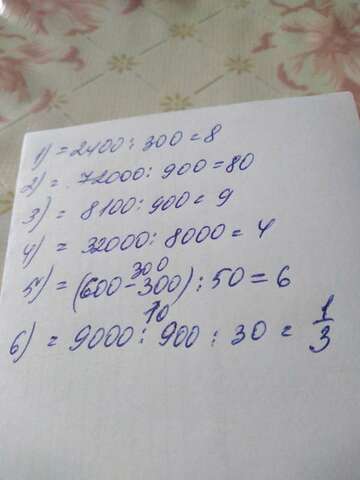 1) = 2400 : 300 = 8
2) = 72000 : 900 = 80
3) = 8100 : 900 = 9
4) = 32000 : 8000 = 4
300
5) = (600 - 300) : 50 = 6
10
6) = 9000 : 900 : 30 = 1/3